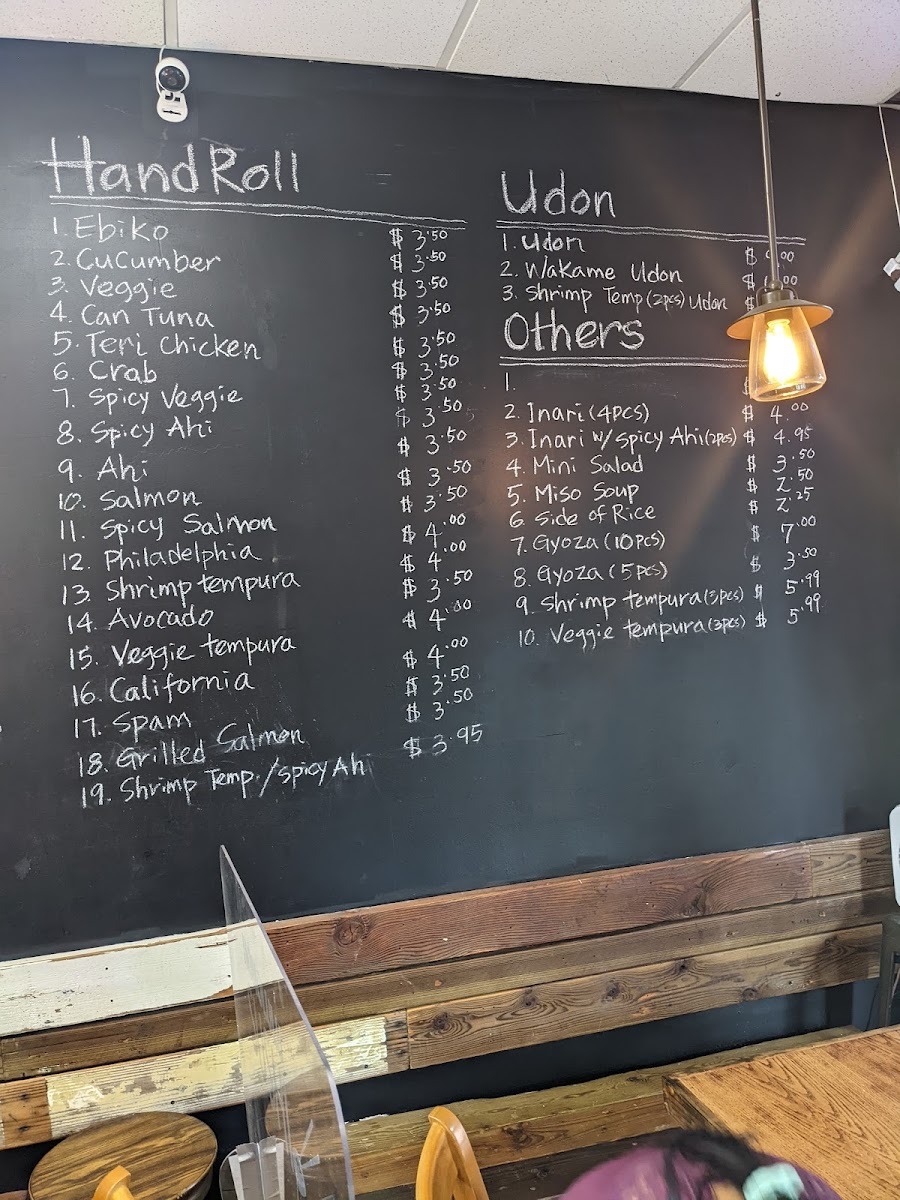 Hand Roll
1. Ebiko $ 3.50
2. Cucumber $ 3.50
3. Veggie $ 3.50
4. Can Tuna $ 3.50
5. Teri Chicken $ 3.50
6. Crab $ 3.50
7. Spicy Veggie $ 3.50
8. Spicy Ahi $ 3.50
9. Ahi $ 3.50
10. Salmon $ 3.50
11. Spicy Salmon $ 3.50
12. Philadelphia $ 4.00
13. Shrimp tempura $ 4.00
14. Avocado $ 3.50
15. Veggie tempura $ 4.00
16. California $ 4.00
17. Spam $ 3.50
18. Grilled Salmon $ 3.50
19. Shrimp Temp./Spicy Ahi $ 3.95
Udon
1. Udon $
2. Wakame Udon $
3. Shrimp Temp (2pcs) Udon $
Others
1. $
2. Inari (4pcs) $ 4.00
3. Inari w/ Spicy Ahi (2pcs) $ 4.95
4. Mini Salad $ 3.50
5. Miso Soup $ 2.50
6. Side of Rice $ 2.25
7. Gyoza (10pcs) 7.00
8. Gyoza (5pcs) $ 3.50
9. Shrimp tempura (3pcs) $ 5.99
10. Veggie tempura (3pcs) $ 5.99